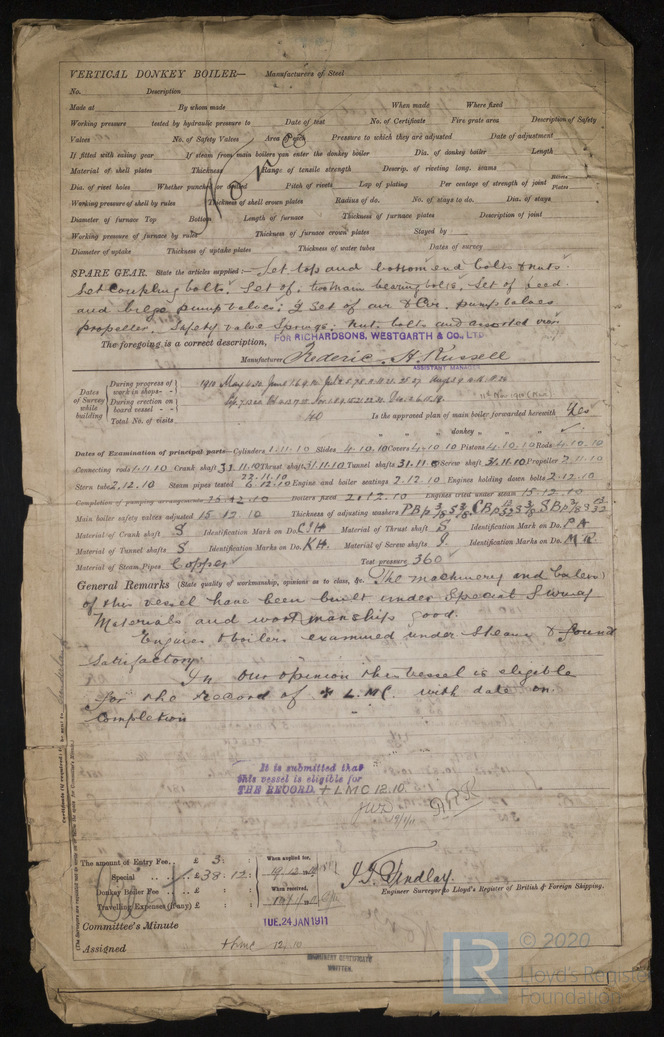 VERTICAL DONKEY BOILER— Manufacturers of Steel
No. Description
Made at By whom made When made Where fixed
Working pressure tested by hydraulic pressure to Date of test No. of Certificate Fire grate area Description of Safety
Valves No. of Safety Valves Area of each Pressure to which they are adjusted Date of adjustment
If fitted with easing gear If steam from main boilers can enter the donkey boiler Dia. of donkey boiler Length
Material of shell plates Thickness Range of tensile strength Descrip. of riveting long. seams
Dia. of rivet holes Whether punched or drilled Pitch of rivets Lap of plating Per centage of strength of joint Rivets Plates
Working pressure of shell by rules Thickness of shell crown plates Radius of do. No. of stays to do. Dia. of stays
Diameter of furnace Top Bottom Length of furnace Thickness of furnace plates Description of joint
Working pressure of furnace by rules Thickness of furnace crown plates Stayed by
Diameter of uptake Thickness of uptake plates Thickness of water tubes Dates of survey
None
SPARE GEAR. State the articles supplied:— Set top and bottom end bolts & nuts.
Set coupling bolts. Set of. tunnel bearing bolts. Set of feed
and bilge pump valves: Set of air & Cir. pump valves
propeller. Safety valve Springs: nuts. bolts and assorted iron
The foregoing is a correct description, FOR RICHARDSONS, WESTGARTH & CO., LTD.
Manufacturer Frederic. H. Russell
ASSISTANT MANAGER
Dates of Survey while building
During progress of work in shops--
During erection on board vessel---
Total No. of visits 40
1910
Is the approved plan of main boiler forwarded herewith Yes
" " " donkey " " "
Dates of Examination of principal parts—Cylinders 1.11.10 Slides 4.10.10 Covers 4.10.10 Pistons 4.10.10 Rods 4.10.10
Connecting rods 1.11.10 Crank shaft 31.11.10 Thrust shaft 31.11.10 Tunnel shafts 31.11.10 Screw shaft 31.11.10 Propeller 2.11.10
22.11.10
Stern tube 2.12.10 Steam pipes tested 6.12.10 Engine and boiler seatings 2.12.10 Engines holding down bolts 2.12.10
Completion of pumping arrangements 25.12.10 Boilers fixed 2.12.10 Engines tried under steam 15.12.10
Main boiler safety valves adjusted 15.12.10 Thickness of adjusting washers
Material of Crank shaft S Identification Mark on Do. C.J.H Material of Thrust shaft S Identification Mark on Do. P.A
Material of Tunnel shafts S Identification Marks on Do. K.H. Material of Screw shafts S Identification Marks on Do. M.R
Material of Steam Pipes Copper Test pressure 360
General Remarks (State quality of workmanship, opinions as to class, &c. The machinery and boilers
of this vessel have been built under Special Survey
Materials and workmanship good.
Engines & boilers examined under Steam & found
satisfactory.
In our opinion this vessel is eligible
for the record of + L.M.C. with date on
completion
It is submitted that
this vessel is eligible for
THE RECORD. + LMC 12.10
The amount of Entry Fee.. £ 3 : :
Special .. .. £ 38 : 12 :
Donkey Boiler Fee .. £ : :
Travelling Expenses (if any) £ : :
When applied for,
When received,
J.T. Findlay.
Engineer Surveyor to Lloyd's Register of British & Foreign Shipping.
Committee's Minute TUE. 24 JAN 1911
Assigned + LMC 12.10
MACHINERY CERTIFICATE
WRITTEN.
LR © 2020
Lloyd's Register
Foundation